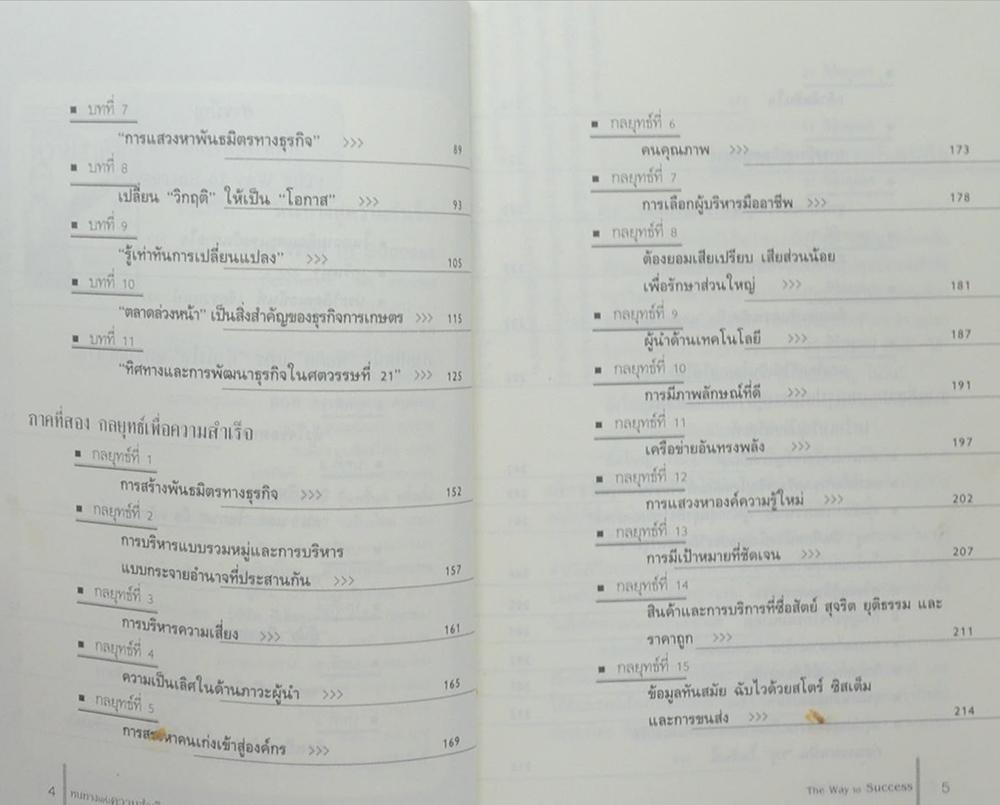 ■ บทที่ 7
“การแสวงหาพันธมิตรทางธุรกิจ” >>> 89
■ บทที่ 8
เปลี่ยน “วิกฤติ” ให้เป็น “โอกาส” >>> 93
■ บทที่ 9
“รู้เท่าทันการเปลี่ยนแปลง” >>> 105
■ บทที่ 10
“ตลาดล่วงหน้า” เป็นสิ่งสำคัญของธุรกิจการเกษตร >>> 115
■ บทที่ 11
“ทิศทางและการพัฒนาธุรกิจในศตวรรษที่ 21” >>> 125
ภาคที่สอง กลยุทธ์เพื่อความสำเร็จ
■ กลยุทธ์ที่ 1
การสร้างพันธมิตรทางธุรกิจ >>> 152
■ กลยุทธ์ที่ 2
การบริหารแบบรวมหมู่และการบริหาร
แบบกระจายอำนาจที่ประสานกัน >>> 157
■ กลยุทธ์ที่ 3
การบริหารความเสี่ยง >>> 161
■ กลยุทธ์ที่ 4
ความเป็นเลิศในด้านภาวะผู้นำ >>> 165
■ กลยุทธ์ที่ 5
คนเก่งเข้าสู่องค์กร >>> 169
4
■ กลยุทธ์ที่ 6
คนคุณภาพ >>> 173
■ กลยุทธ์ที่ 7
การเลือกผู้บริหารมืออาชีพ >>> 178
■ กลยุทธ์ที่ 8
ต้องยอมเสียเปรียบ เสียส่วนน้อย
เพื่อรักษาส่วนใหญ่ >>> 181
■ กลยุทธ์ที่ 9
ผู้นำด้านเทคโนโลยี >>> 187
■ กลยุทธ์ที่ 10
การมีภาพลักษณ์ที่ดี >>> 191
■ กลยุทธ์ที่ 11
เครือข่ายอันทรงพลัง >>> 197
■ กลยุทธ์ที่ 12
การแสวงหาองค์ความรู้ใหม่ >>> 202
■ กลยุทธ์ที่ 13
การมีเป้าหมายที่ชัดเจน >>> 207
■ กลยุทธ์ที่ 14
สินค้าและการบริการที่ซื่อสัตย์ สุจริต ยุติธรรม และ
ราคาถูก >>> 211
■ กลยุทธ์ที่ 15
ข้อมูลทันสมัย ฉับไวด้วยสโตร์ ซิสเต็ม
และการขนส่ง >>> 214
The Way to Success 5